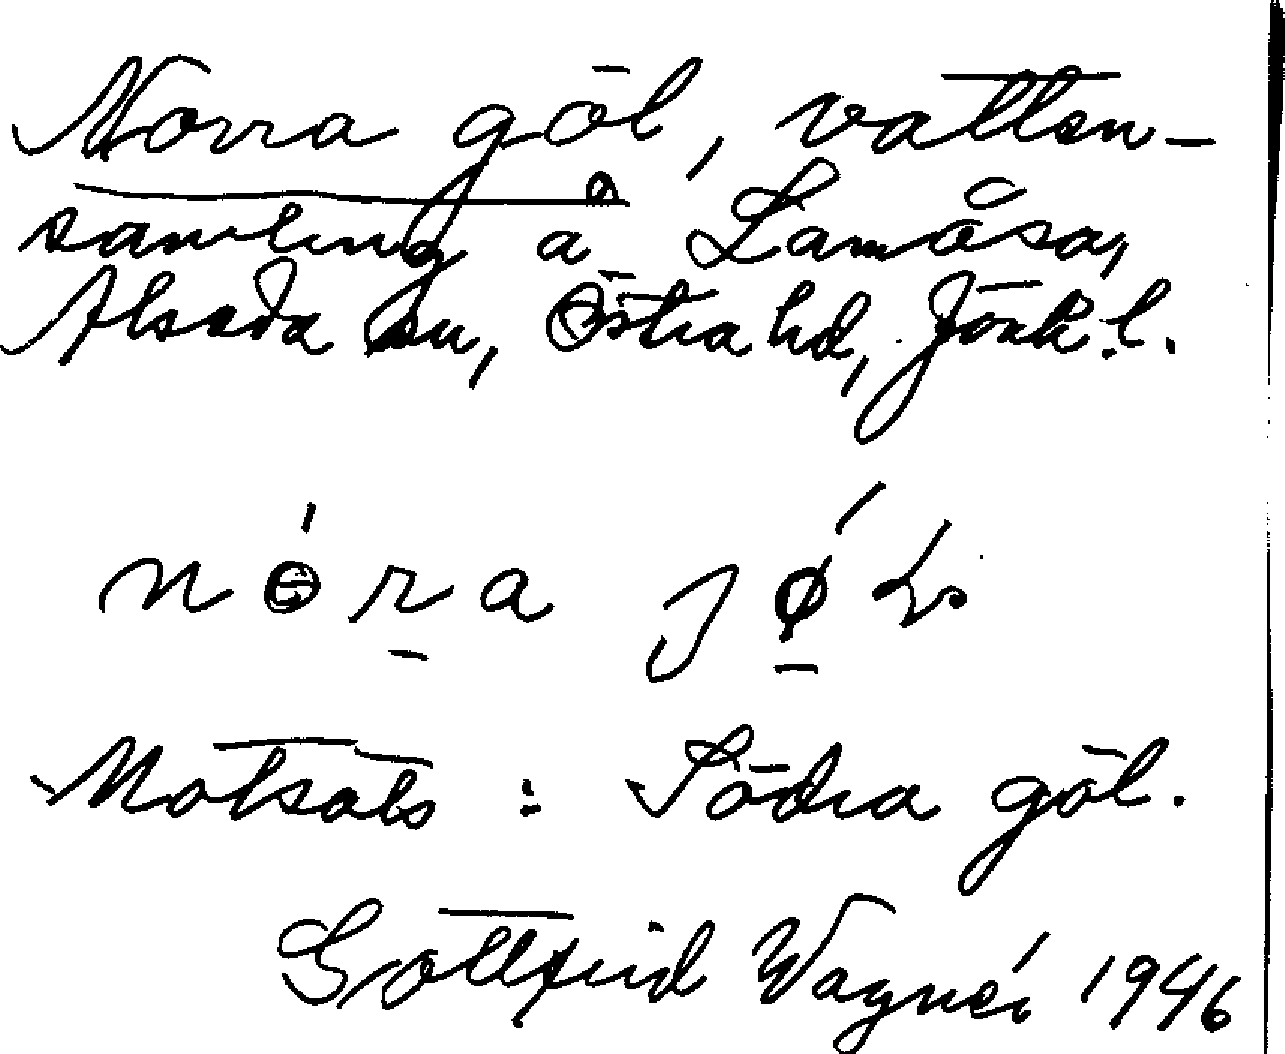 Norra göl, vatten-
samling å Lamåsa,
Alseda sn, Östra hd, Jönk. l.
nóra jǿl
Motsats: Södra göl.
Gottfrid Wagnér 1946